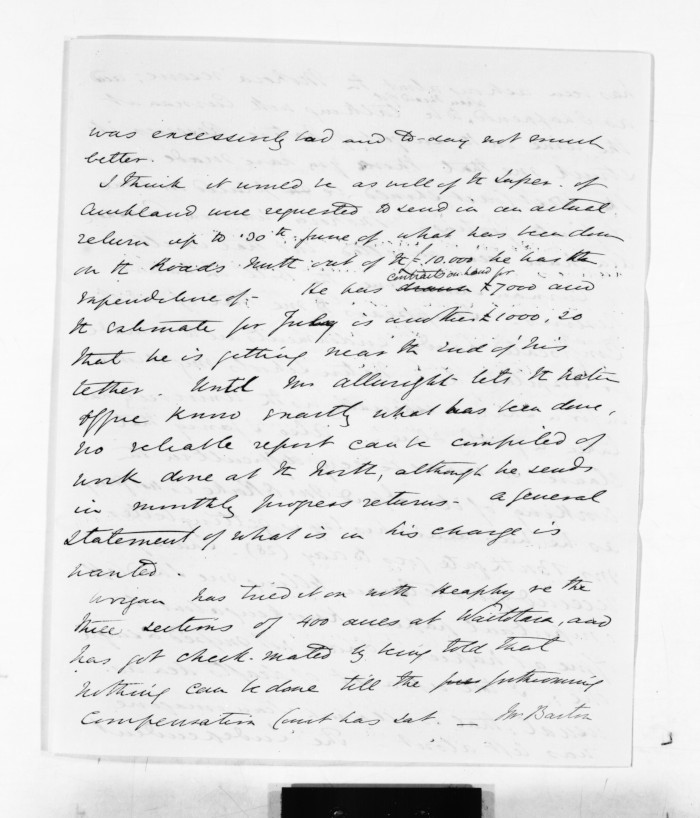 was excessively bad and to-day not much
better.
I think it would be as well if the Super. of
Auckland were requested to send in an actual
return up to 30th June of what has been done
on the Roads North out of the £10.000 he has the
expenditure of - He has drawn contracts on hand for £7000 and
the estimate for July is another £1000, so
that he is getting near the end of his
tether. Until Mr Allright lets the
office know exactly what has been done,
no reliable report can be compiled of
work done at the North, although he sends
in monthly progress returns - a general
statement of what is in his charge is
wanted.
Wrigan has tried it on with Heaphy re the
three sections of 400 acres at Waitotara, and
has got check-mated by being told that
nothing can be done till the forthcoming
Compensation Court has sat. — Mr Barton